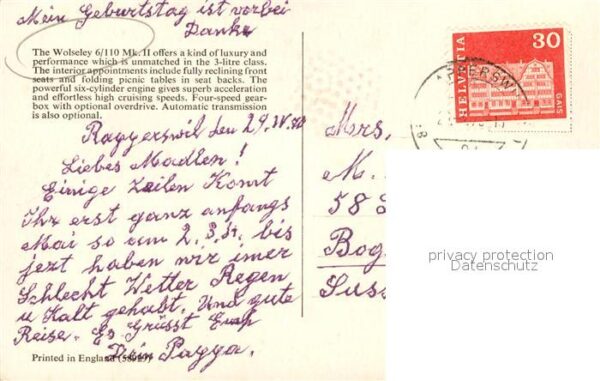 Mein Geburtstag ist vorbei
Danke
The Wolseley 6/110 Mk. II offers a kind of luxury and
performance which is unmatched in the 3-litre class.
The interior appointments include fully reclining front
seats and folding picnic tables in seat backs. The
powerful six-cylinder engine gives superb acceleration
and effortless high cruising speeds. Four-speed gear-
box with optional overdrive. Automatic transmission
is also optional.
den 29.
Liebes Madlen!
Einige Zeilen Komt
Ihr erst ganz anfangs
Mai so am 2. 3. bis
jezt haben wir imer
Schlecht Wetter Regen
u Kalt gehabt. Und gute
Reise. Es Grüsst
Printed in England
HELVETIA
30
GAIS
Mrs,
M.
58
Bog
Suss
privacy protection
Datenschutz